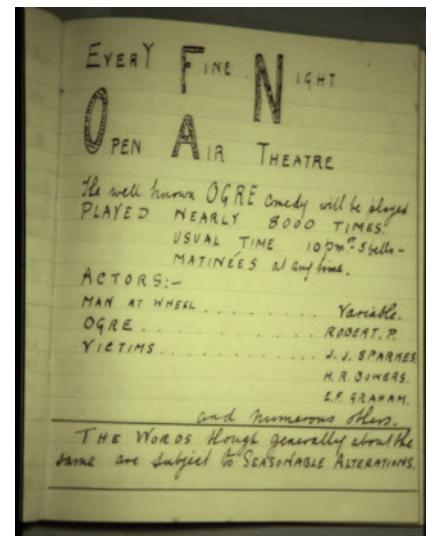 EVERY FINE NIGHT
OPEN AIR THEATRE
The well known OGRE comedy will be played
PLAYED NEARLY 8000 TIMES.
USUAL TIME 10pm. 5 bells -
MATINÉES at any time.
ACTORS:-
MAN AT WHEEL . . . . . . . . Variable.
OGRE . . . . . . . . . . . . . ROBERT. P.
VICTIMS . . . . . . . . . . . . J. J. SPARKES
H. R. BOWERS.
E.F. GRAHAM.
and numerous others.
THE WORDS though generally about the
same are subject to SEASONABLE ALTERATIONS.